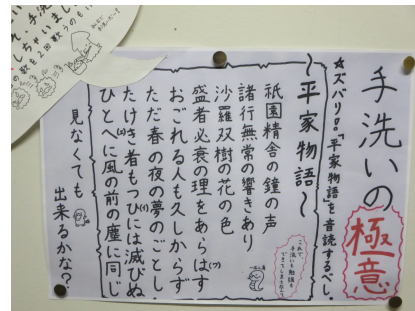 手洗いの極意
☆ズバリ!!「平家物語を音読するべし。
～平家物語～
祇園精舎の鐘の声
諸行無常の響きあり
沙羅双樹の花の色
盛者必衰の理をあらはす(ワ)
おごれる人も久しからず
ただ春の夜の夢のごとし。
たけき者もつひ(イ)には滅びぬ
ひとへ(エ)に風の前の塵に同じ
見なくても
出来るかな？
これで、
手洗いも勉強も
できてしまいますなぁ